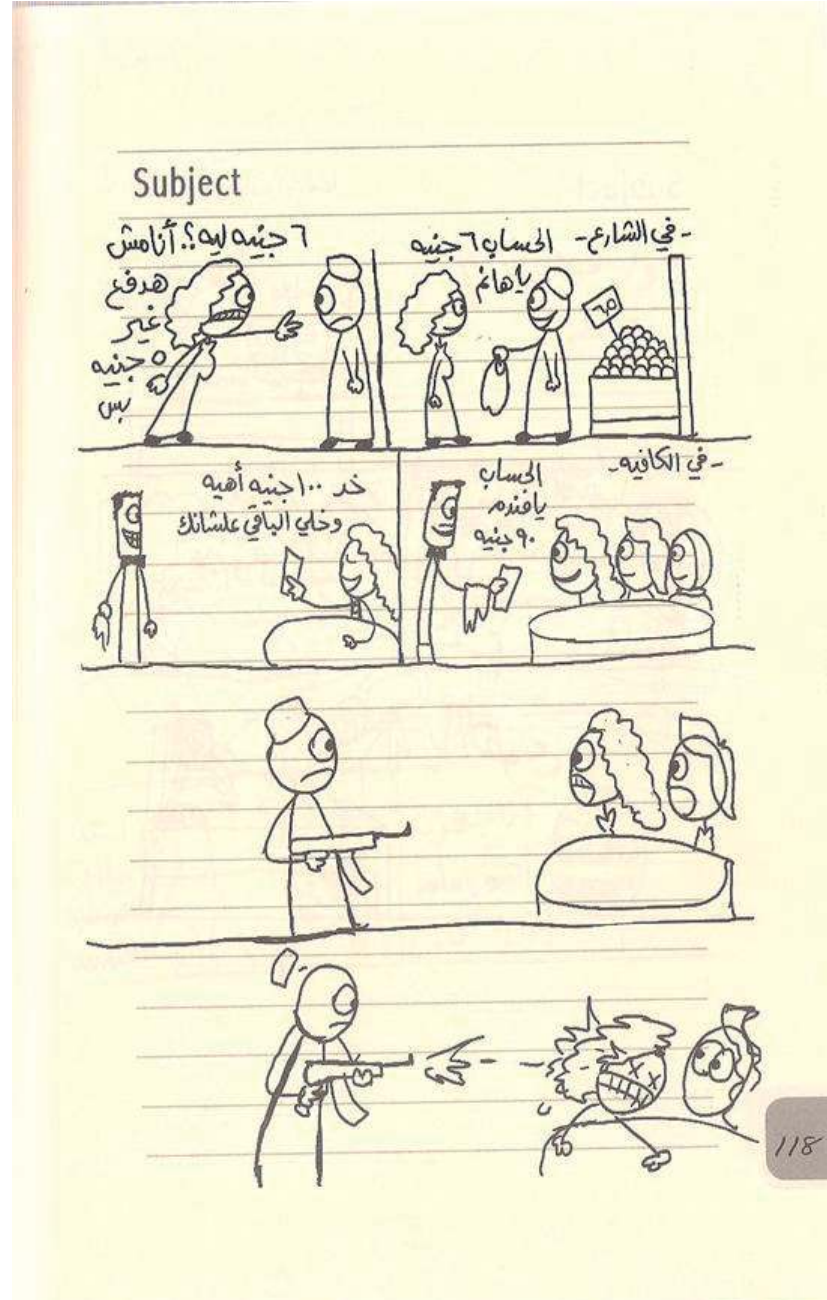 Subject
- في الشارع -
الحساب ٦ جنيه
يا هانم
٦٥
٦ جنيه ليه؟! أنا مش
هدفع
غير
٥ جنيه
بس
- في الكافيه -
الحساب
يافندم
٩٠ جنيه
خد ١٠٠ جنيه أهيه
وخلي الباقي علشانك
118